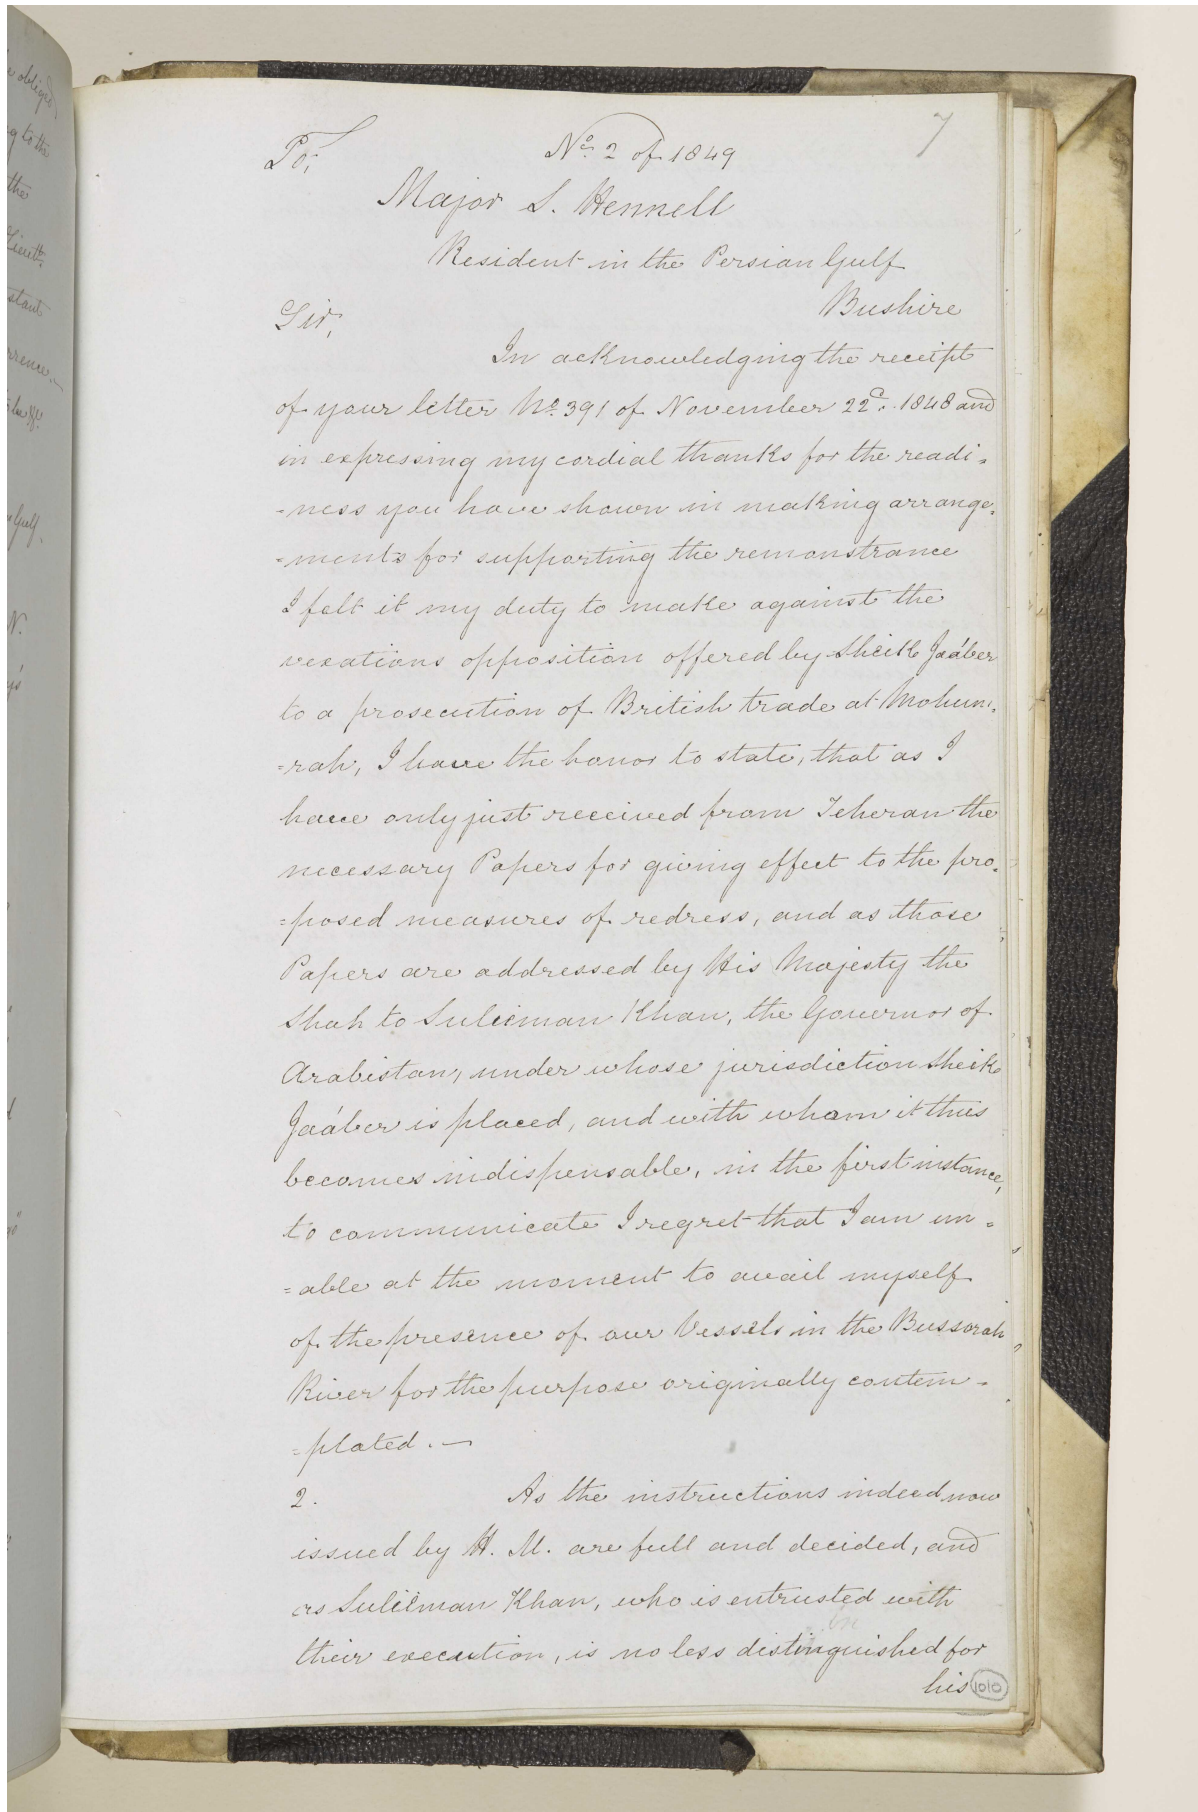 7
To,
No. 2 of 1849
Major S. Hennell
Resident in the Persian Gulf
Bushire
Sir,
In acknowledging the receipt
of your letter No. 391 of November 22d. 1848 and
in expressing my cordial thanks for the readi-
-ness you have shown in making arrange-
-ments for supporting the remonstrance
I felt it my duty to make against the
vexatious opposition offered by Sheik Jaáber
to a prosecution of British trade at Mohum-
-rah, I have the honor to state, that as I
have only just received from Teheran the
necessary Papers for giving effect to the pro-
-posed measures of redress, and as those
Papers are addressed by His Majesty the
Shah to Sulieman Khan, the Governor of
Arabistan, under whose jurisdiction Sheik
Jaáber is placed, and with whom it thus
becomes indispensable, in the first instance,
to communicate I regret that I am un-
-able at the moment to avail myself
of the presence of our Vessels in the Bussorah
River for the purpose originally contem-
-plated. —
2. As the instructions indeed now
issued by H. M. are full and decided, and
as Sulieman Khan, who is entrusted with
their execution, is no less distinguished for
his
1010
e obliged
g to the
the
Lieutt.
stant
rrence. —
Gulf.
N.